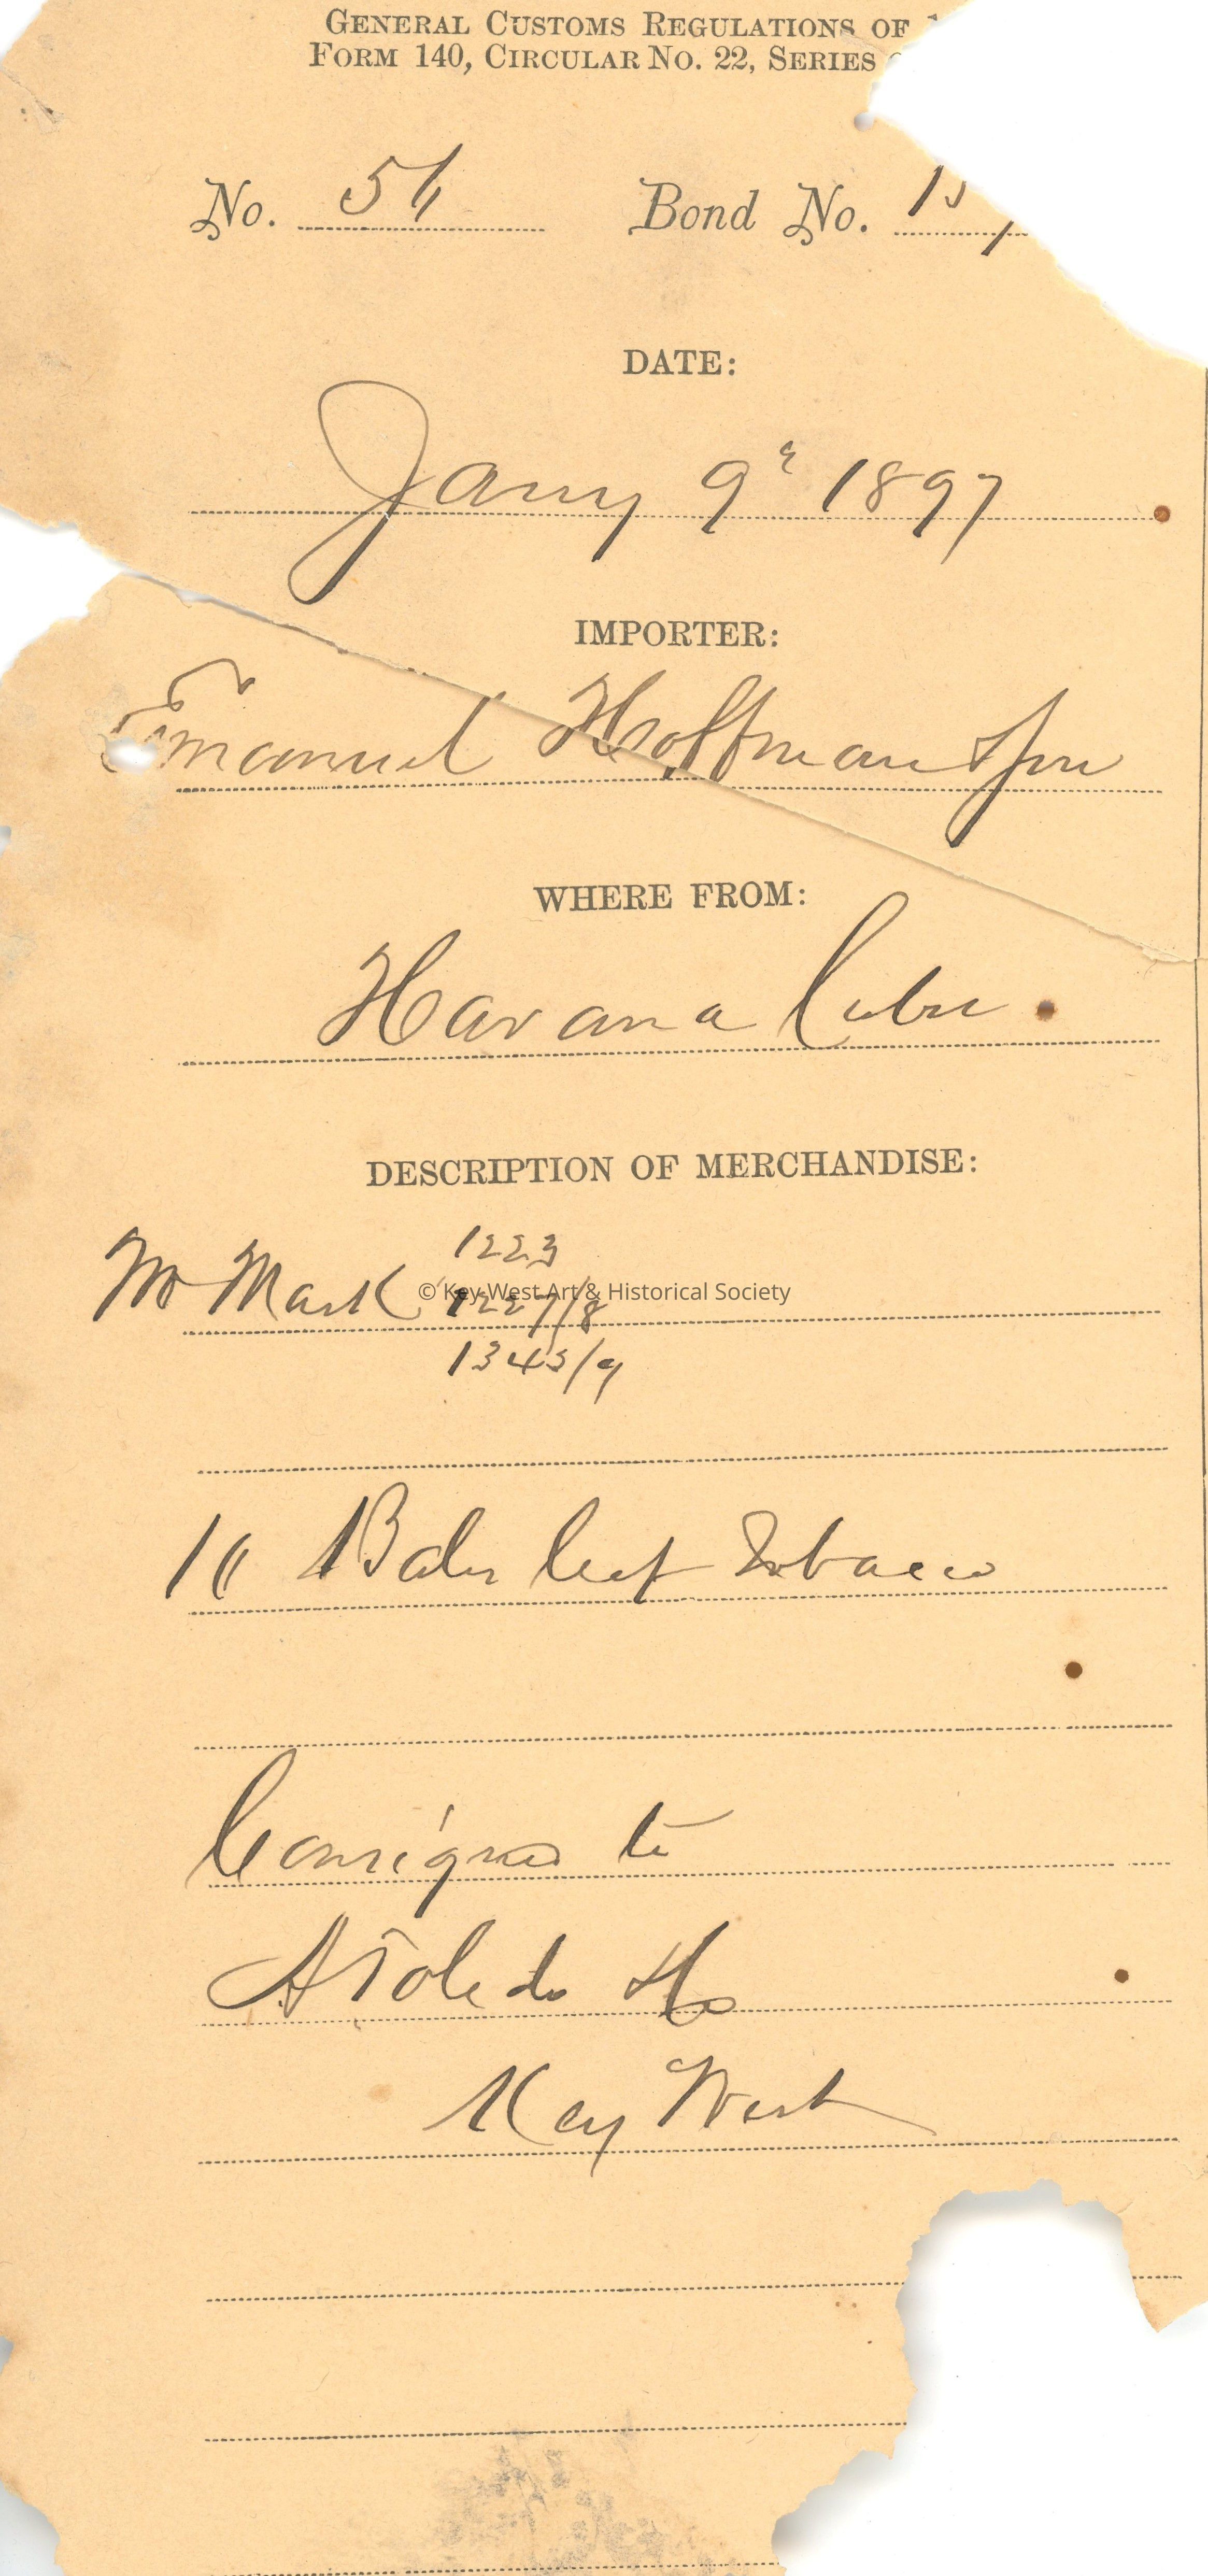 GENERAL CUSTOMS REGULATIONS OF
FORM 140, CIRCULAR NO. 22, SERIES
No. 56 Bond No.
DATE:
Jany 9" 1897
IMPORTER:
Emanuel Hoffman & Son
WHERE FROM:
Havana Cuba
DESCRIPTION OF MERCHANDISE:
Mark 1223
© Key West Art & Historical Society
1227/8
1345/9
Bales leaf Tobacco
Consigned to
A Toledo & Co
Key West